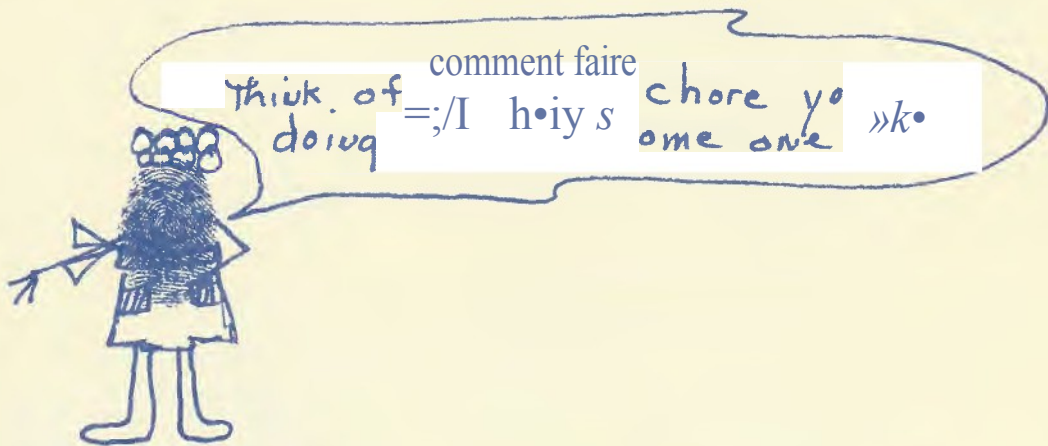 comment faire
Think of =;/I h•iy s chore yo »k•
doing ome one